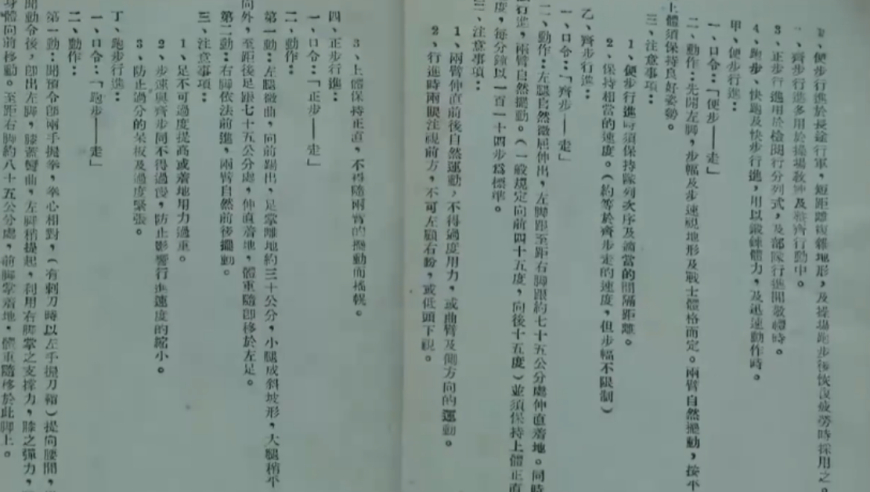 1、便步行進於長途行軍，短距離複雜地形，及操場跑步後恢復疲勞時採用之。
2、齊步行進多用於操場教練及整齊行動中。
3、正步行進用於檢閱行分列式，及部隊行進間敬禮時。
4、跑步、快跑及快步行進，用以鍛鍊體力，及迅速動作時。
甲、便步行進：
一、口令：「便步——走」
二、動作：先開左脚，步幅及步速視地形及戰士體格而定。兩臂自然擺動，按平
上體須保持良好姿勢。
三、注意事項：
1、便步行進時須保持隊列次序及適當的間隔距離。
2、保持相當的速度。（約等於齊步走的速度，但步幅不限制）
乙、齊步行進：
一、口令：「齊步——走」
二、動作：左腿自然微屈伸出，左脚距至距右脚跟約七十五公分處伸直着地。同時
行進，兩臂自然擺動。（一般規定向前四十五度，向後十五度）並須保持上體正直
度，每分鐘以一百一十四步爲標準。
三、注意事項：
1、兩臂伸直前後自然運動，不得過度用力，或曲臂及側方向的運動。
2、行進時兩眼注視前方，不可左顧右盼，或低頭下視。
3、上體保持正直，不得隨兩臂的擺動而搖幌。
四、正步行進：
一、口令：「正步——走」
二、動作：
第一動：左腿微曲，向前踢出，足掌離地約三十公分，小腿成斜坡形，大腿稍平
向外，至距後足跟七十五公分處，伸直着地，體重隨卽移於左足。
第二動：右脚依法前進，兩臂自然前後擺動。
三、注意事項：
1、足不可過度提高或着地用力過重。
2、步速與齊步同不得過慢，防止影響行進速度的縮小。
3、防止過分的呆板及過度緊張。
丁、跑步行進：
一、口令：「跑步——走」
二、動作：
第一動：聞預令卽兩手提拳，拳心相對，（有刺刀時以左手握刀鞘）提向腰間，
聞動令後，卽出左脚，膝蓋彎曲，左脚稍提起，利用右脚掌之支撐力，膝之彈力，
身體向前移動。至距右脚約八十五公分處，前脚掌着地，體重隨移於此脚上。